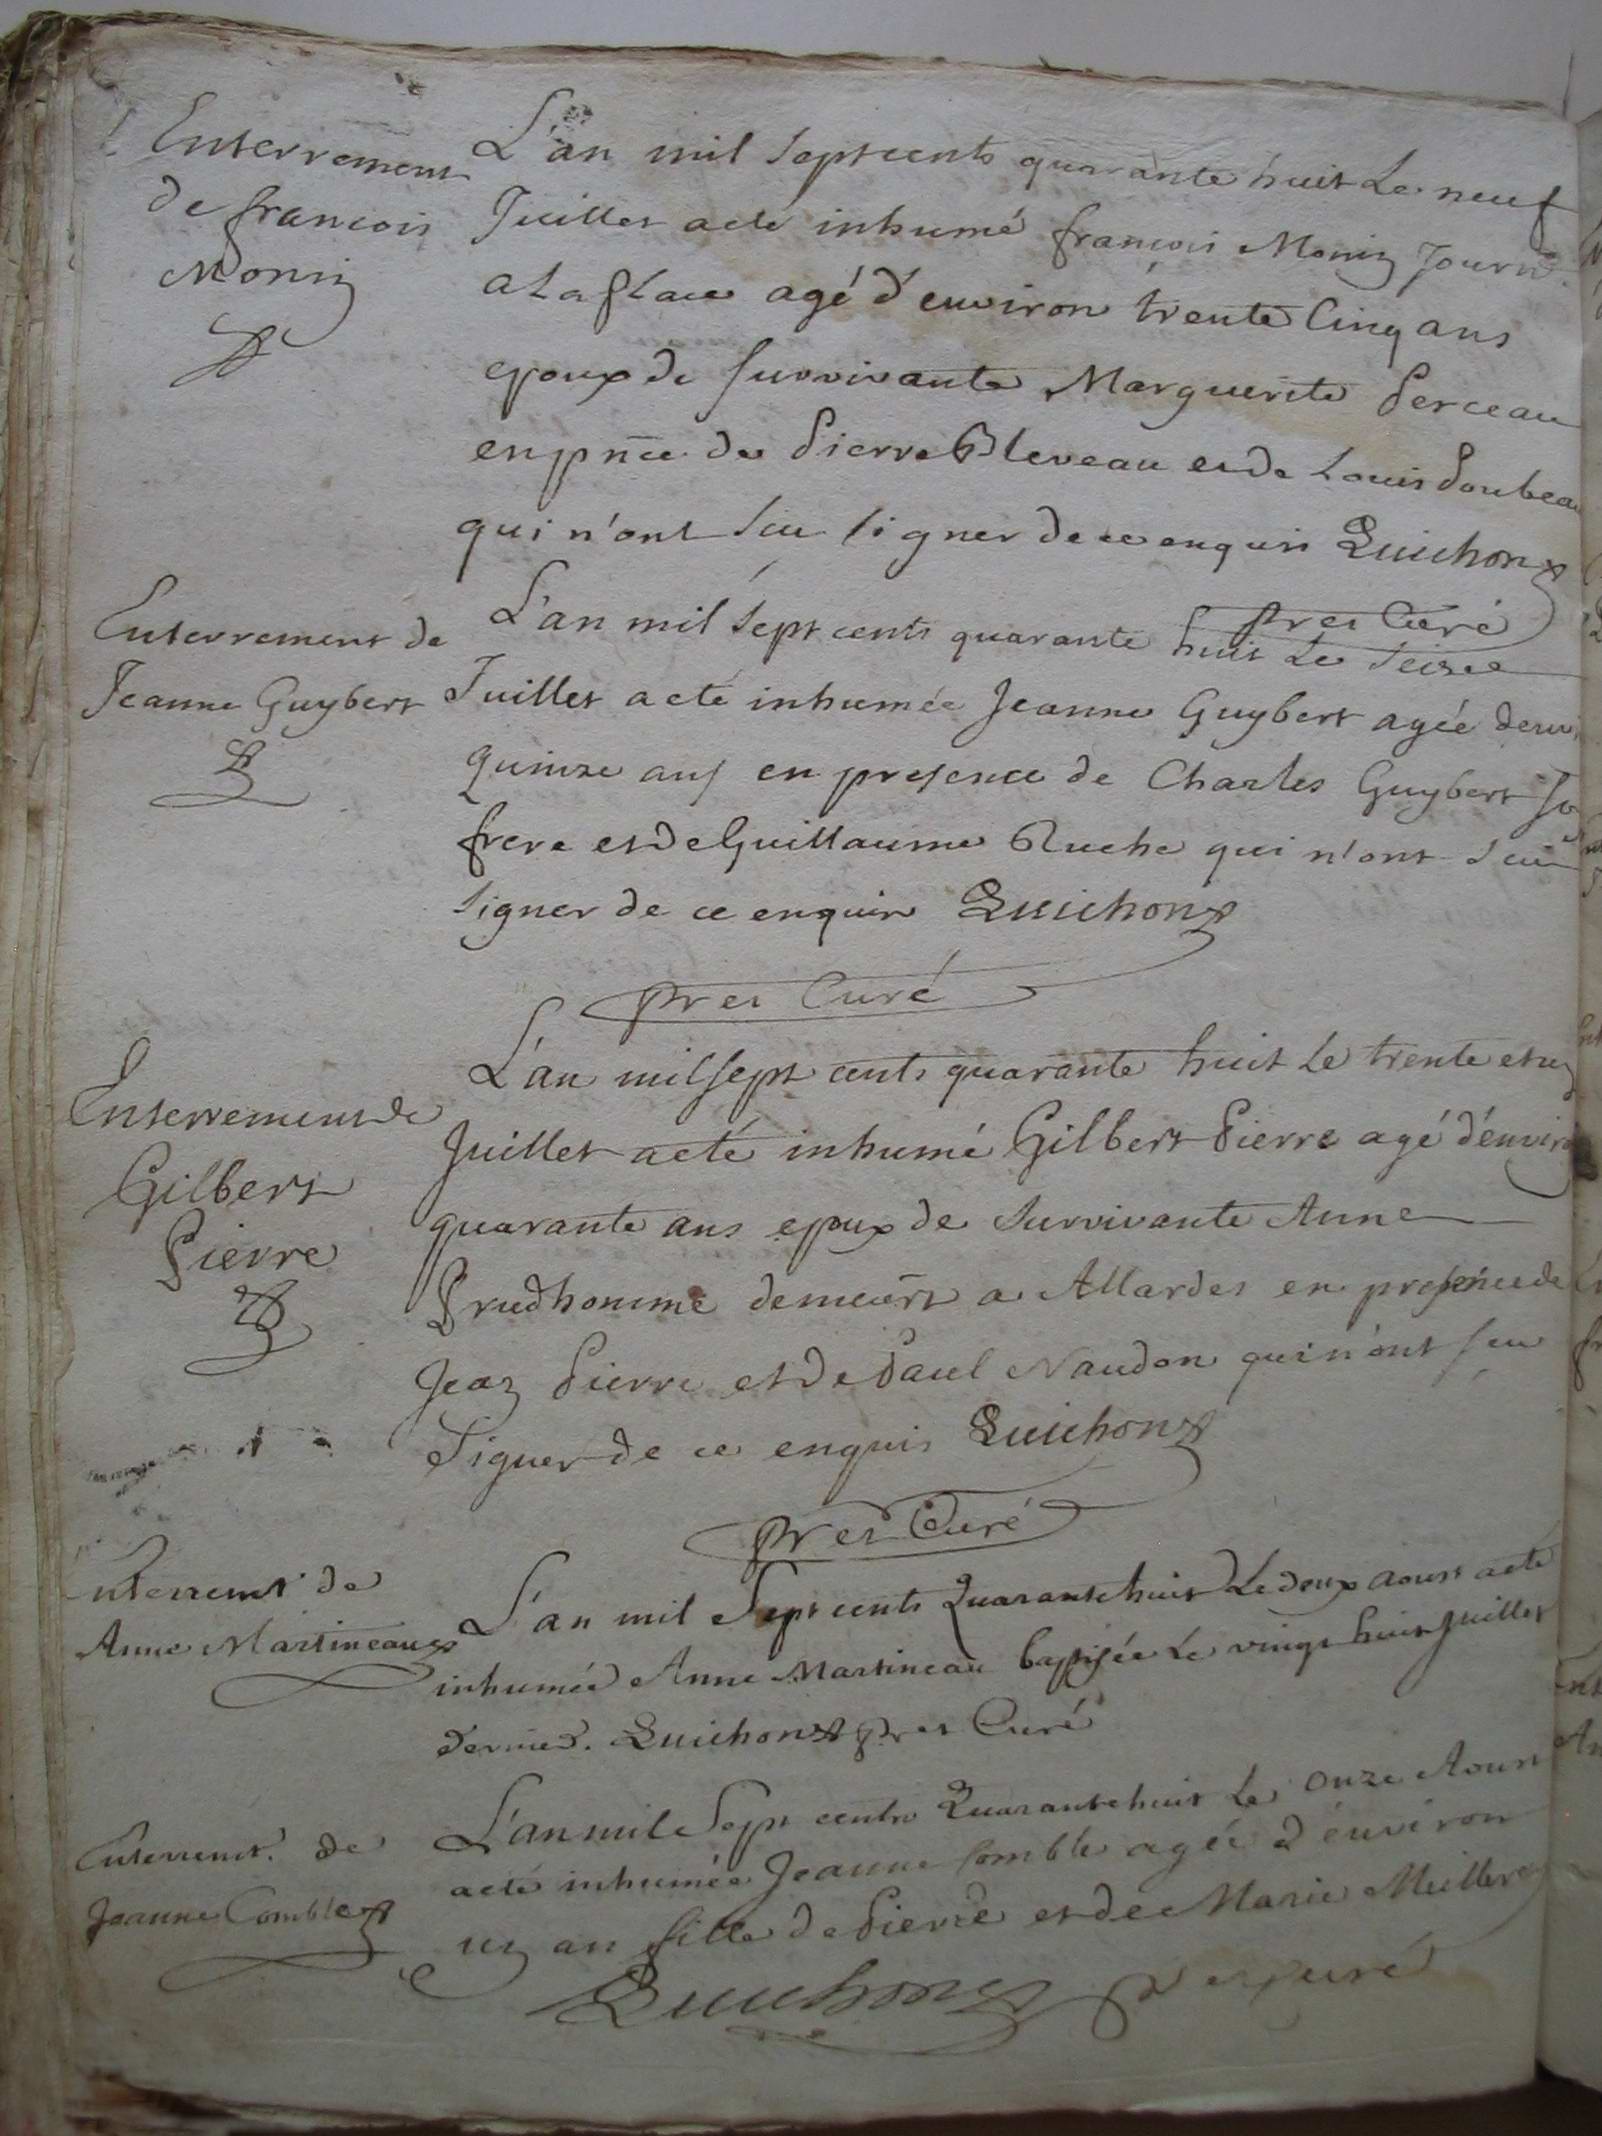 Enterrement
de francois
Monin
L'an mil Septcents quarante huit Le neuf
Juillet aeté inhumé francois Monin Journ
a La place agé d'environ trente Cinq ans
epoux de Survivante Marguerite Perceau
en pñce de Pierre Bleveau et de Louis Poubeau
qui n'ont Scu signer de ce enquis Quichon
Pr et Curé
Enterrement de
Jeanne Guybert
L'an mil Sept cents quarante huit Le Seize
Juillet aeté inhumée Jeanne Guybert agée
quinze ans en presence de Charles Guybert
frere et de Guillaume Ruche qui n'ont Scu
Signer de ce enquis Quichon
Pr et Curé
Enterrement de
Gilbert
Pierre
L'an mil sept cents quarante huit Le trente et un
Juillet aeté inhumé Gilbert Pierre agé d'environ
quarante ans epoux de Survivante Anne
Prudhomme demeurt a Allardes en presence de
Jean Pierre et de Paul Naudon qui n'ont scu
Signer de ce enquis Quichon
Pr et Curé
Enterremt de
Anne Martineau
L'an mil Sept cents Quarante huit Le deux aoust aeté
inhumée Anne Martineau baptisée Le vingt huit Juillet
dernier. Quichon Pr et Curé
Enterremt. de
Jeanne Comble
L'an mil Sept cents Quarante huit Le onze Aoust
aeté inhumée Jeanne Comble agée d'environ
un an fille de Pierre et de Marie
Quichon Pr et curé